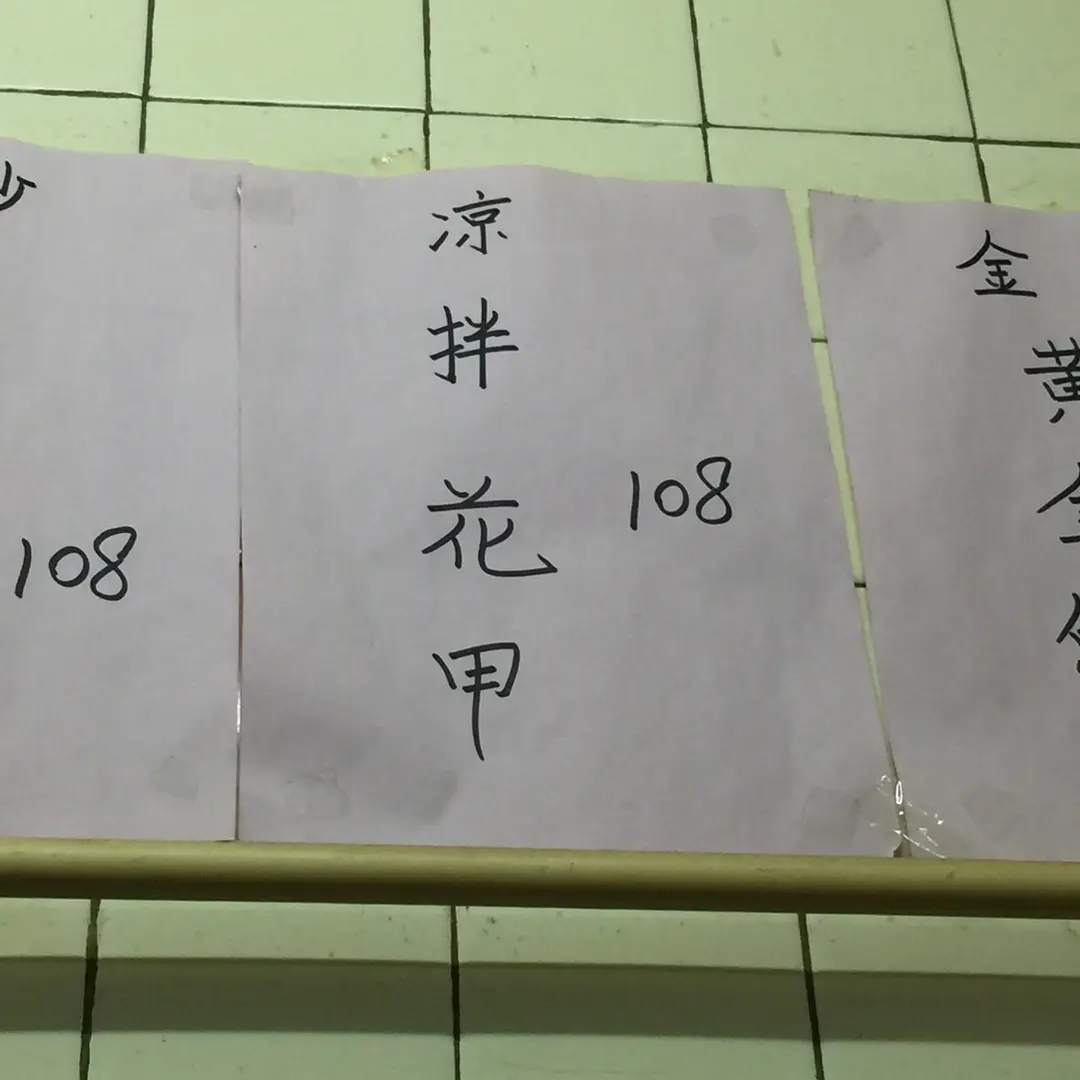 108
凉拌花甲
108
金
黄金